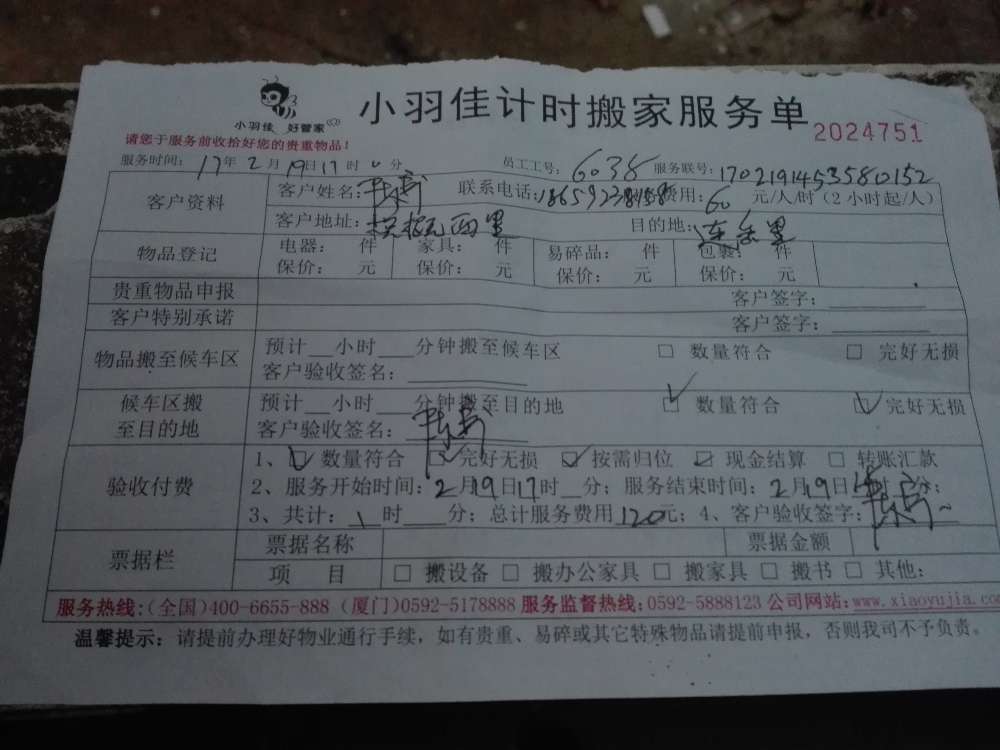 小羽佳计时搬家服务单
小羽佳 好管家
2024751
请您于服务前收拾好您的贵重物品！
服务时间：17年2月19日17时0分 员工工号：6038 服务联号：1702191453580152
客户资料 客户姓名： 联系电话： 费用：60元/人/时（2小时起/人）
客户地址： 西里 目的地： 里
物品登记 电器： 件 家具： 件 易碎品： 件 包裹： 件
保价： 元 保价： 元 保价： 元 保价： 元
贵重物品申报 客户签字：
客户特别承诺 客户签字：
物品搬至候车区 预计__小时___分钟搬至候车区 □ 数量符合 □ 完好无损
客户验收签名：
候车区搬至目的地 预计__小时___分钟搬至目的地 ☑ 数量符合 ☑ 完好无损
客户验收签名：
验收付费 1、☑ 数量符合 ☑ 完好无损 ☑ 按需归位 ☑ 现金结算 □ 转账汇款
2、服务开始时间：2月19日17时__分；服务结束时间：2月19日 时 分；
3、共计：1时___分；总计服务费用120元；4、客户验收签字：
票据栏 票据名称 票据金额
项 目 □ 搬设备 □ 搬办公家具 □ 搬家具 □ 搬书 □ 其他：
服务热线：（全国）400-6655-888（厦门）0592-5178888 服务监督热线：0592-5888123 公司网站：www.xiaoyujia.co
温馨提示：请提前办理好物业通行手续，如有贵重、易碎或其它特殊物品请提前申报，否则我司不予负责。